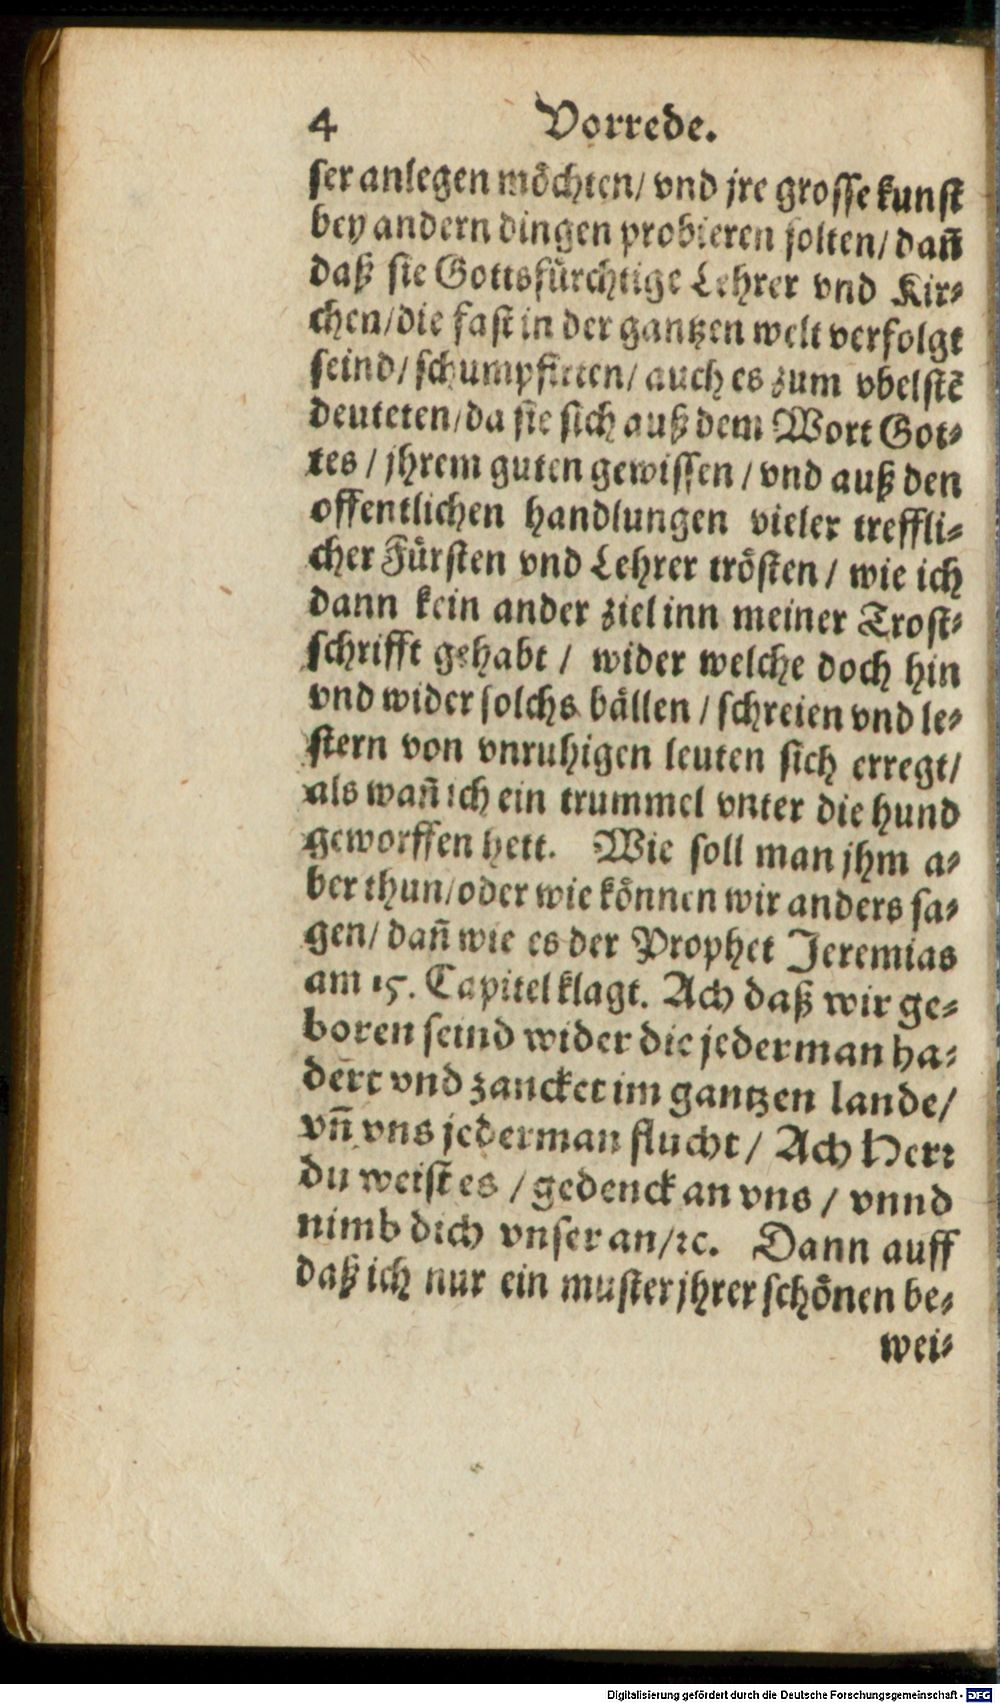 4 Vorrede.
ser anlegen möchten/ vnd jre grosse kunst
bey andern dingen probieren solten/ dañ
daß sie Gottsfürchtige Lehrer vnd Kir⸗
chen/ die fast in der gantzen welt verfolgt
seind/ schumpfirten/ auch es zum vbelstẽ
deuteten/ da sie sich auß dem Wort Got⸗
tes / jhrem guten gewissen / vnd auß den
offentlichen handlungen vieler treffli⸗
cher Fürsten vnd Lehrer trösten / wie ich
dann kein ander ziel inn meiner Trost⸗
schrifft gehabt / wider welche doch hin
vnd wider solchs bällen / schreien vnd le⸗
stern von vnruhigen leuten sich erregt/
als wañ ich ein trummel vnter die hund
geworffen hett. Wie soll man jhm a⸗
ber thun/ oder wie können wir anders sa⸗
gen/ dañ wie es der Prophet Jeremias
am 15. Capitel klagt. Ach daß wir ge⸗
boren seind wider die jederman ha⸗
dert vnd zancket im gantzen lande/
vñ vns jederman flucht / Ach Herr
du weist es / gedenck an vns / vnnd
nimb dich vnser an/ ꝛc. Dann auff
daß ich nur ein muster jhrer schönen be⸗
wei⸗
Digitalisierung gefördert durch die Deutsche Forschungsgemeinschaft - DFG